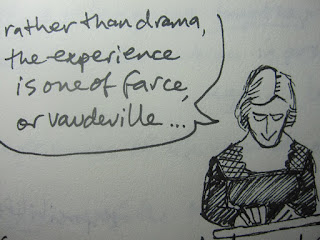 rather than drama,
the experience
is one of farce,
or vaudeville ...